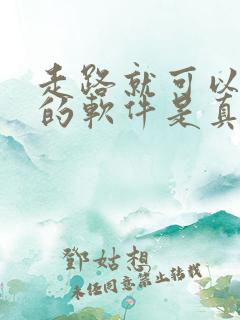 走路就可以
的軟件是真
鄧姑想
未经同意禁止转载